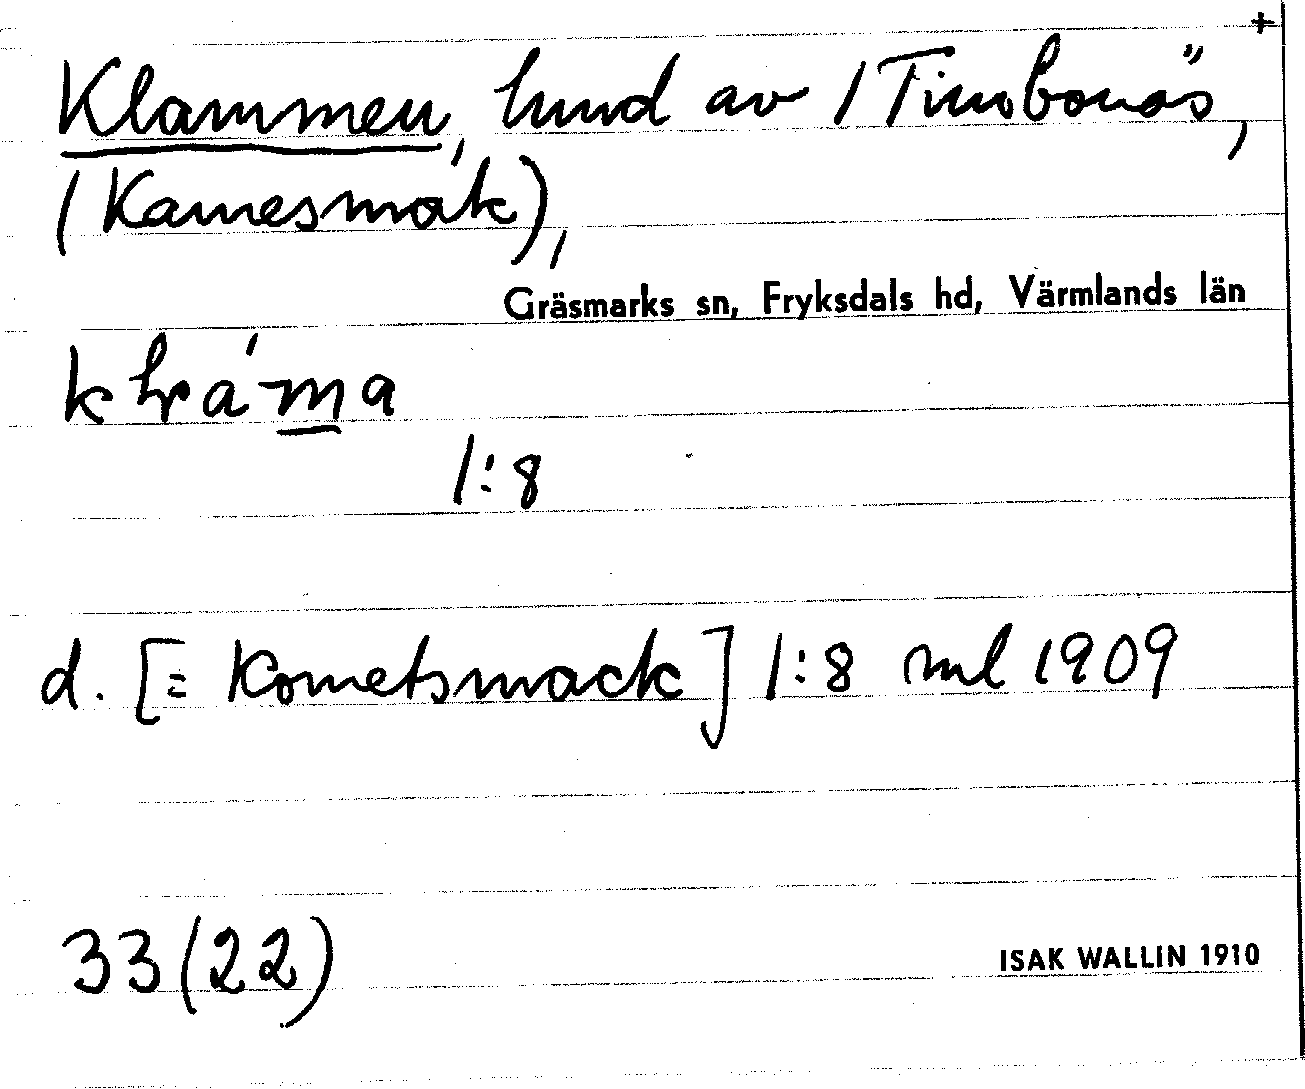 +
Klammen, hmd av 1 Timbonäs,
(Kamesmak),
Gräsmarks sn, Fryksdals hd, Värmlands län
1:8
d. [= Kometsmack] 1:8 ml 1909
33(22)
ISAK WALLIN 1910